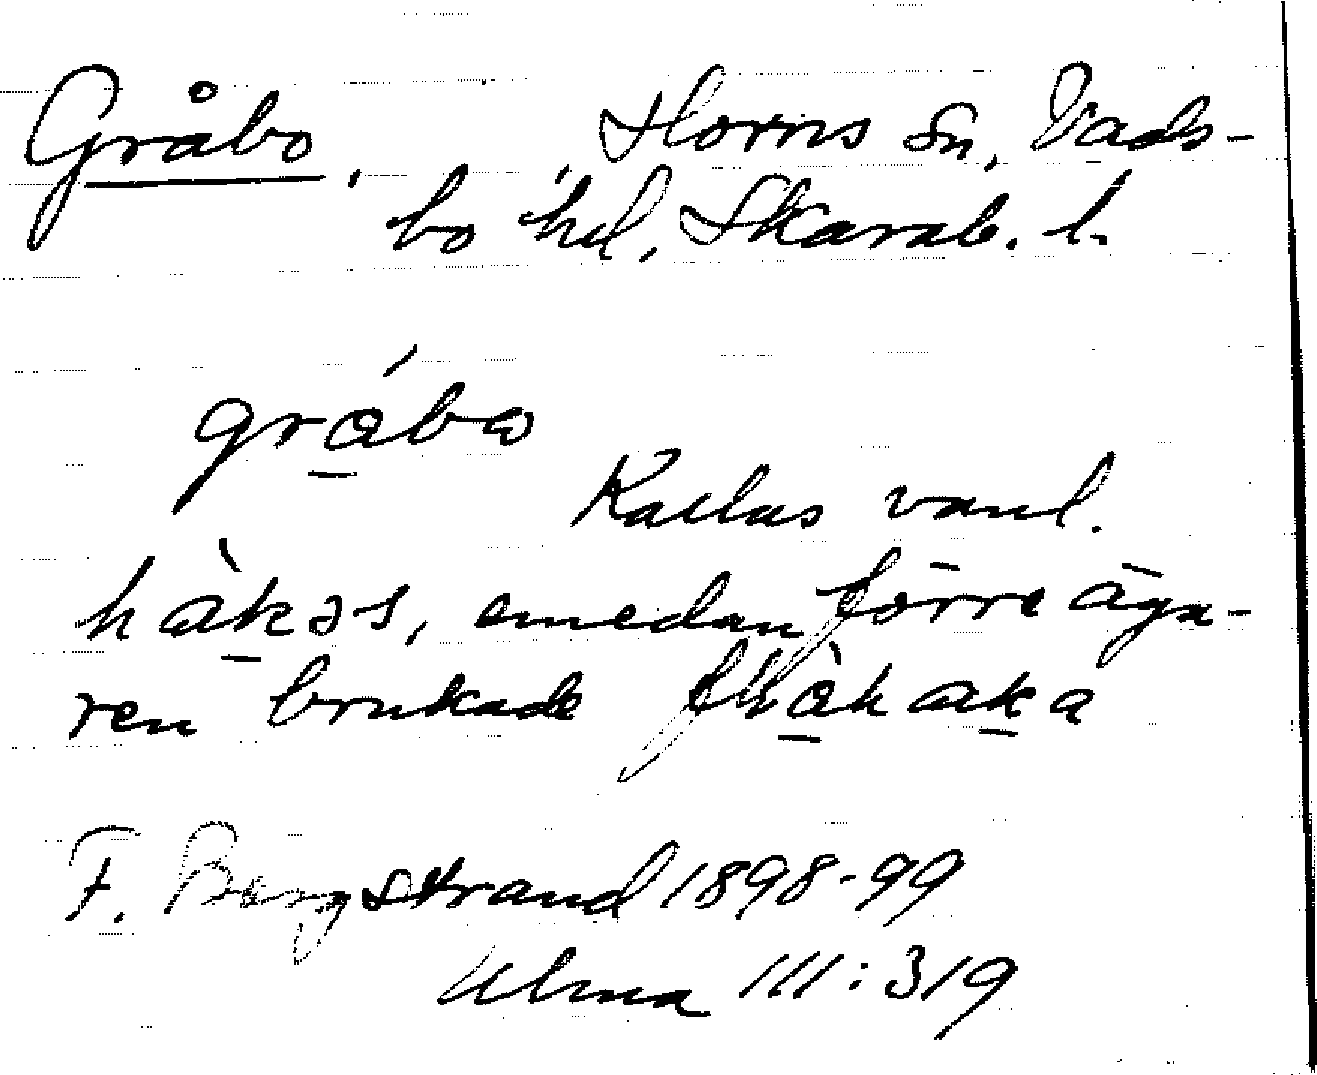 Gråbo, Horns sn, Vads-
bo hd, Skarab. l.
gråbo
Kallas vanl.
håkəs, emedan förre äga-
ren brukade
F. Bergstrand 1898-99
Ulma 111:319